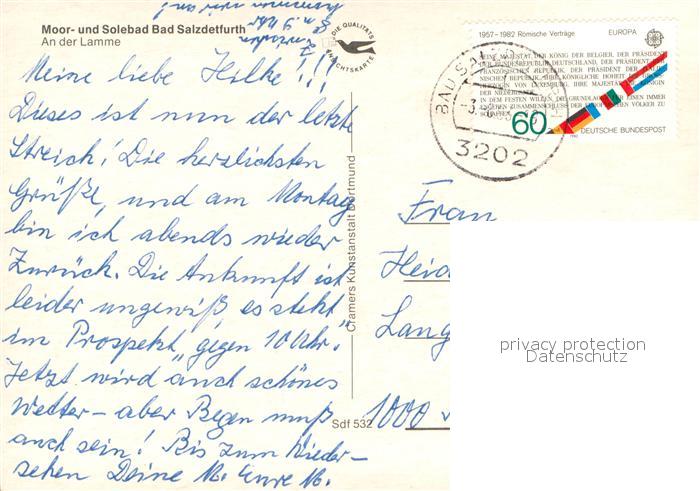 Moor- und Solebad Bad Salzdetfurth
An der Lamme
DIE QUALITÄTS
ANSICHTSKARTE
Meine liebe Hilke!!!
Dieses ist nun der letzte
Streich! Die herzlichsten
Grüße, und am Montag
bin ich abends wieder
Zurück. Die Ankunft ist
leider ungewiß es steht
im Prospekt "gegen 10 Uhr."
Jetzt wird auch schönes
Wetter – aber Regen muß
auch sein! Bis zum Wieder-
sehen Deine M. Eure M.
Cramers Kunstanstalt Dortmund
Sdf 532
1957–1982 Römische Verträge EUROPA
SEINE MAJESTÄT DER KÖNIG DER BELGIER, DER PRÄSIDENT
DER BUNDESREPUBLIK DEUTSCHLAND, DER PRÄSIDENT DER
FRANZÖSISCHEN REPUBLIK, DER PRÄSIDENT DER ITALIENISCHEN
REPUBLIK, IHRE KÖNIGLICHE HOHEIT
HERZOGIN VON LUXEMBURG, IHRE MAJESTÄT
DER NIEDERLANDE
IN DEM FESTEN WILLEN, DIE GRUNDLAGEN FÜR EINEN IMMER
60
DEUTSCHE BUNDESPOST
1982
BAD SALZ
3202
Frau
Heid
Lang
1000
privacy protection
Datenschutz